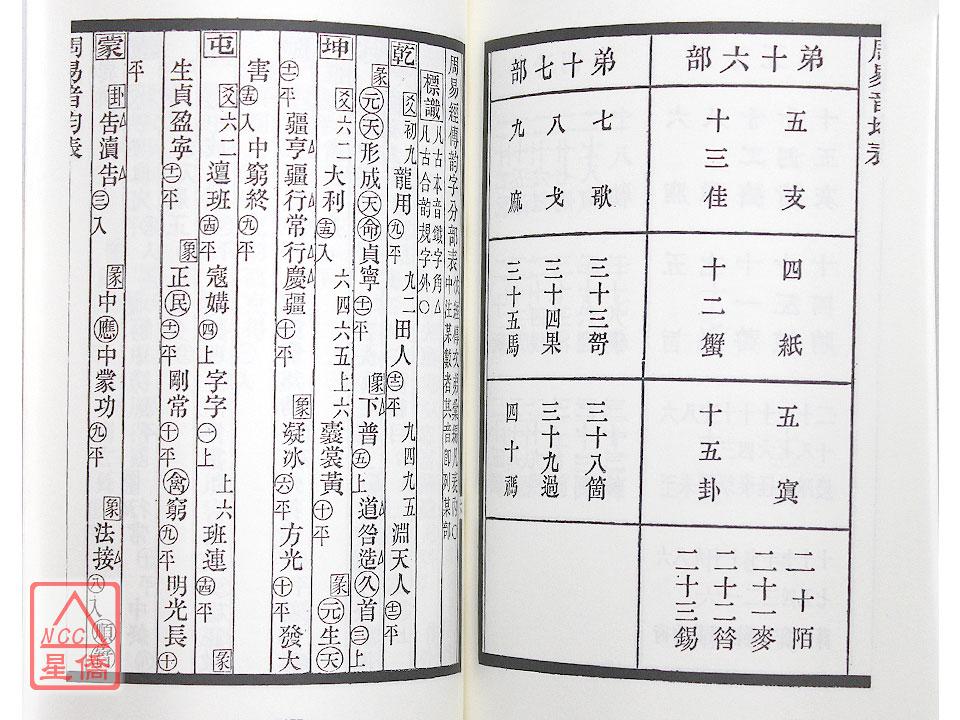 周易音均表
弟十六部
五支 四紙 五寘 二十陌
十三佳 十二蟹 十五卦 二十一麥
二十二昝
二十三錫
弟十七部
七歌 三十三哿 三十八箇
八戈 三十四果 三十九過
九麻 三十五馬 四十禡
周易經傳韵字分部表
標識凡古本音鐵字角△凡古合韵規字外〇
乾 爻初九龍用九平 九二田人十二平 九四九五淵天人十二平
彖元天形成天命貞寧十一平 象下普五上道咎造久首三上
坤 爻六二大利十五入 六四六五上六囊裳黃十平 彖元生天
十二平 疆亨疆行常行慶疆十平 象凝冰六平 方光十平 發大
害十五入 中窮終九平
屯 爻六二邅班十四平 寇媾四上 字字一上 上六班連十四平 象
生貞盈寧十一平 象正民十二平 剛常十平 禽窮九平 明光長十
平
蒙 卦告瀆告三入 彖中應中蒙功九平 象法接八入順
周易音均表
NCC
星僑